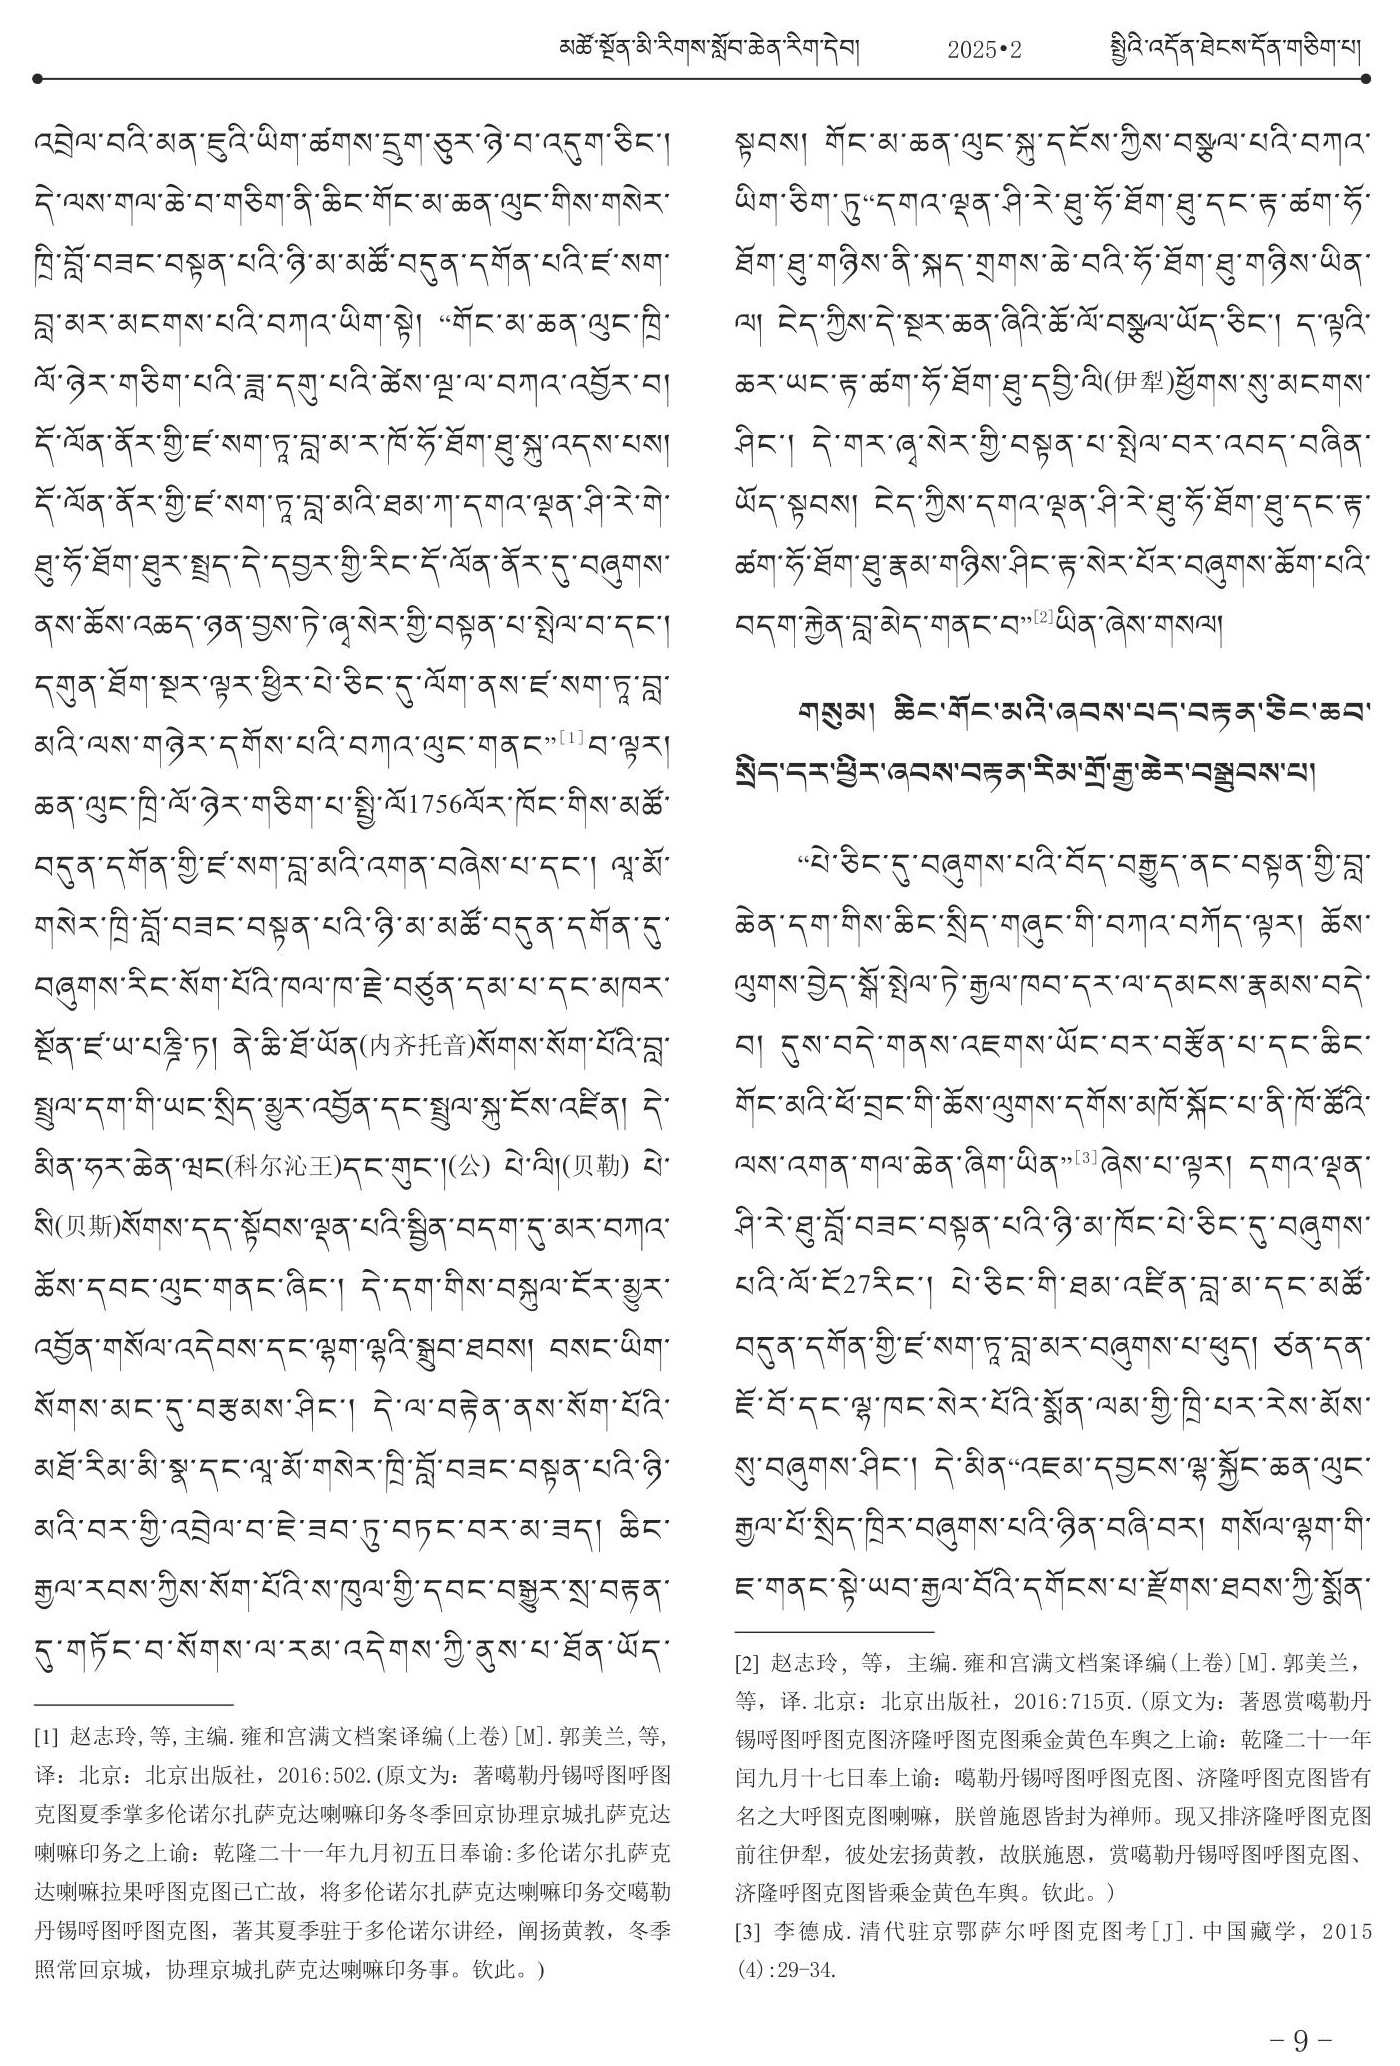 མཚོ་སྔོན་མི་རིགས་སློབ་ཆེན་རིག་དེབ། 2025•2 སྤྱིའི་འདོན་ཐེངས་དོན་གཅིག་པ།
འབྲེལ་བའི་མན་ཇུའི་ཡིག་ཚགས་དྲུག་ཅུར་ཉེ་བ་འདུག་ཅིང་།
དེ་ལས་གལ་ཆེ་བ་གཅིག་ནི་ཆིང་གོང་མ་ཆན་ལུང་གིས་གསེར་
ཁྲི་བློ་བཟང་བསྟན་པའི་ཉི་མ་མཚོ་བདུན་དགོན་པའི་ཛ་སག་
བླ་མར་མངགས་པའི་བཀའ་ཡིག་སྟེ། “གོང་མ་ཆན་ལུང་ཁྲི་
ལོ་ཉེར་གཅིག་པའི་ཟླ་དགུ་པའི་ཚེས་ལྔ་ལ་བཀའ་འབྱོར་བ།
དོ་ལོན་ནོར་གྱི་ཛ་སག་ཏཱ་བླ་མ་ར་ཁོ་ཧོ་ཐོག་ཐུ་སྐུ་འདས་པས།
དོ་ལོན་ནོར་གྱི་ཛ་སག་ཏཱ་བླ་མའི་ཐམ་ཀ་དགའ་ལྡན་ཤི་རེ་གེ་
ཐུ་ཧོ་ཐོག་ཐུར་སྤྲད་དེ་དབྱར་གྱི་རིང་དོ་ལོན་ནོར་དུ་བཞུགས་
ནས་ཆོས་འཆད་ཉན་བྱས་ཏེ་ཞྭ་སེར་གྱི་བསྟན་པ་སྤེལ་བ་དང་།
དགུན་ཐོག་སྔར་ལྟར་ཕྱིར་པེ་ཅིང་དུ་ལོག་ནས་ཛ་སག་ཏཱ་བླ་
མའི་ལས་གཉེར་དགོས་པའི་བཀའ་ལུང་གནང”[1]བ་ལྟར།
ཆན་ལུང་ཁྲི་ལོ་ཉེར་གཅིག་པ་སྤྱི་ལོ1756ལོར་ཁོང་གིས་མཚོ་
བདུན་དགོན་གྱི་ཛ་སག་བླ་མའི་འགན་བཞེས་པ་དང་། ལཱ་མོ་
གསེར་ཁྲི་བློ་བཟང་བསྟན་པའི་ཉི་མ་མཚོ་བདུན་དགོན་དུ་
བཞུགས་རིང་སོག་པོའི་ཁལ་ཁ་རྗེ་བཙུན་དམ་པ་དང་མཁར་
སྔོན་ཛ་ཡ་པཎྜི་ཏ། ནེ་ཆི་ཐོ་ཡོན(内齐托音)སོགས་སོག་པོའི་བླ་
སྤྲུལ་དག་གི་ཡང་སྲིད་མྱུར་འབྱོན་དང་སྤྲུལ་སྐུ་ངོས་འཛིན། དེ་
མིན་ཧར་ཆེན་ཝང(科尔沁王)དང་གུང་།(公) པེ་ལི།(贝勒) པེ་
སི(贝斯)སོགས་དད་སྟོབས་ལྡན་པའི་སྦྱིན་བདག་དུ་མར་བཀའ་
ཆོས་དབང་ལུང་གནང་ཞིང་། དེ་དག་གིས་བསྐུལ་ངོར་མྱུར་
འབྱོན་གསོལ་འདེབས་དང་ལྷག་ལྷའི་སྒྲུབ་ཐབས། བསང་ཡིག་
སོགས་མང་དུ་བརྩམས་ཤིང་། དེ་ལ་བརྟེན་ནས་སོག་པོའི་
མཐོ་རིམ་མི་སྣ་དང་ལཱ་མོ་གསེར་ཁྲི་བློ་བཟང་བསྟན་པའི་ཉི་
མའི་བར་གྱི་འབྲེལ་བ་ཇེ་ཟབ་ཏུ་བཏང་བར་མ་ཟད། ཆིང་
རྒྱལ་རབས་ཀྱིས་སོག་པོའི་ས་ཁུལ་གྱི་དབང་བསྒྱུར་སྲ་བརྟན་
དུ་གཏོང་བ་སོགས་ལ་རམ་འདེགས་ཀྱི་ནུས་པ་ཐོན་ཡོད་
[1] 赵志玲,等,主编.雍和宫满文档案译编(上卷)[M].郭美兰,等,
译：北京：北京出版社，2016:502.(原文为：著噶勒丹锡哷图呼图
克图夏季掌多伦诺尔扎萨克达喇嘛印务冬季回京协理京城扎萨克达
喇嘛印务之上谕：乾隆二十一年九月初五日奉谕:多伦诺尔扎萨克
达喇嘛拉果呼图克图已亡故，将多伦诺尔扎萨克达喇嘛印务交噶勒
丹锡哷图呼图克图，著其夏季驻于多伦诺尔讲经，阐扬黄教，冬季
照常回京城，协理京城扎萨克达喇嘛印务事。钦此。)
སྟབས། གོང་མ་ཆན་ལུང་སྐུ་དངོས་ཀྱིས་བསྩལ་པའི་བཀའ་
ཡིག་ཅིག་ཏུ“དགའ་ལྡན་ཤི་རེ་ཐུ་ཧོ་ཐོག་ཐུ་དང་རྟ་ཚག་ཧོ་
ཐོག་ཐུ་གཉིས་ནི་སྐད་གྲགས་ཆེ་བའི་ཧོ་ཐོག་ཐུ་གཉིས་ཡིན་
ལ། ངེད་ཀྱིས་དེ་སྔར་ཆན་ཞིའི་ཚོ་ལོ་བསྩལ་ཡོད་ཅིང་། ད་ལྟའི་
ཆར་ཡང་རྟ་ཚག་ཧོ་ཐོག་ཐུ་དབྱི་ལི(伊犁)ཕྱོགས་སུ་མངགས་
ཤིང་། དེ་གར་ཞྭ་སེར་གྱི་བསྟན་པ་སྤེལ་བར་འབད་བཞིན་
ཡོད་སྟབས། ངེད་ཀྱིས་དགའ་ལྡན་ཤི་རེ་ཐུ་ཧོ་ཐོག་ཐུ་དང་རྟ་
ཚག་ཧོ་ཐོག་ཐུ་རྣམ་གཉིས་ཤིང་རྟ་སེར་པོར་བཞུགས་ཆོག་པའི་
བདག་རྐྱེན་བླ་མེད་གནང་བ”[2]ཡིན་ཞེས་གསལ།
གསུམ། ཆིང་གོང་མའི་ཞབས་པད་བརྟན་ཅིང་ཆབ་
སྲིད་དར་ཕྱིར་ཞབས་བརྟན་རིམ་གྲོ་རྒྱ་ཆེར་བསྒྲུབས་པ།
“པེ་ཅིང་དུ་བཞུགས་པའི་བོད་བརྒྱུད་ནང་བསྟན་གྱི་བླ་
ཆེན་དག་གིས་ཆིང་སྲིད་གཞུང་གི་བཀའ་བཀོད་ལྟར། ཆོས་
ལུགས་བྱེད་སྒོ་སྤེལ་ཏེ་རྒྱལ་ཁབ་དར་ལ་དམངས་རྣམས་བདེ་
བ། དུས་བདེ་གནས་འཇགས་ཡོང་བར་བརྩོན་པ་དང་ཆིང་
གོང་མའི་ཕོ་བྲང་གི་ཆོས་ལུགས་དགོས་མཁོ་སྐོང་པ་ནི་ཁོ་ཚོའི་
ལས་འགན་གལ་ཆེན་ཞིག་ཡིན”[3]ཞེས་པ་ལྟར། དགའ་ལྡན་
ཤི་རེ་ཐུ་བློ་བཟང་བསྟན་པའི་ཉི་མ་ཁོང་པེ་ཅིང་དུ་བཞུགས་
པའི་ལོ་ངོ27རིང་། པེ་ཅིང་གི་ཐམ་འཛིན་བླ་མ་དང་མཚོ་
བདུན་དགོན་གྱི་ཛ་སག་ཏཱ་བླ་མར་བཞུགས་པ་ཕུད། ཙན་དན་
ཇོ་བོ་དང་ལྷ་ཁང་སེར་པོའི་སྨོན་ལམ་གྱི་ཁྲི་པར་རེས་མོས་
སུ་བཞུགས་ཤིང་། དེ་མིན“འཇམ་དབྱངས་ལྷ་སྐྱོང་ཆན་ལུང་
རྒྱལ་པོ་སྲིད་ཁྲིར་བཞུགས་པའི་ཉིན་བཞི་བར། གསོལ་ལྷག་གི་
ཇ་གནང་སྟེ་ཡབ་རྒྱལ་བོའི་དགོངས་པ་རྫོགས་ཐབས་ཀྱི་སྨོན་
[2] 赵志玲，等，主编.雍和宫满文档案译编(上卷)[M].郭美兰，
等，译.北京：北京出版社，2016:715页.(原文为：著恩赏噶勒丹
锡哷图呼图克图济隆呼图克图乘金黄色车舆之上谕：乾隆二十一年
闰九月十七日奉上谕：噶勒丹锡哷图呼图克图、济隆呼图克图皆有
名之大呼图克图喇嘛，朕曾施恩皆封为禅师。现又排济隆呼图克图
前往伊犁，彼处宏扬黄教，故朕施恩，赏噶勒丹锡哷图呼图克图、
济隆呼图克图皆乘金黄色车舆。钦此。)
[3] 李德成.清代驻京鄂萨尔呼图克图考[J].中国藏学，2015
(4):29-34.
－9－